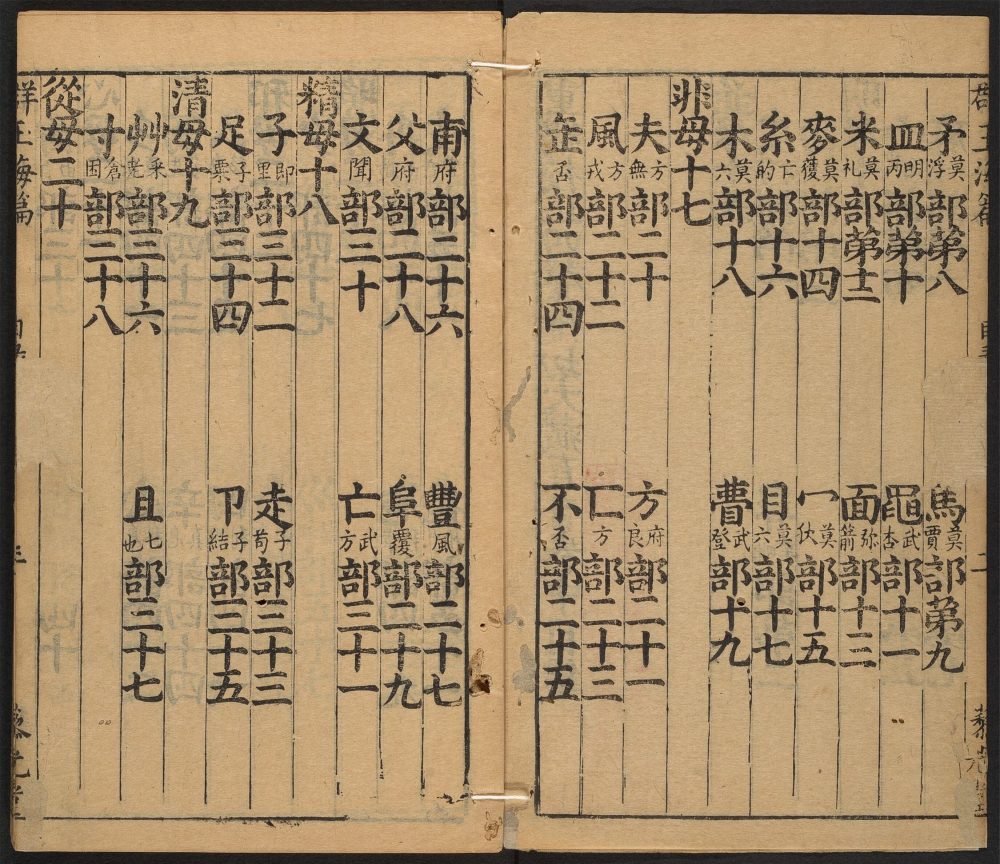 矛莫浮部第八 馬莫賈部第九
皿明丙部第十 黽武杏部十一
米莫礼部第十二 面弥箭部十三
麥莫獲部十四 冖莫伙部十五
糸亡的部十六 目莫六部十七
木莫六部十八 瞢武登部十九
非母十七
夫方無部二十 方府良部二十一
風方戎部二十二 匚方部二十三
缶否部二十四 不否部二十五
甫府部二十六 豐風部二十七
父府部二十八 阜覆部二十九
文聞部三十 亡武方部三十一
精母十八
子即里部三十二 走子苟部三十三
足子粟部三十四 卩子結部三十五
清母十九
艸采老部三十六 且七也部三十七
寸倉困部三十八
從母二十
群玉海篇